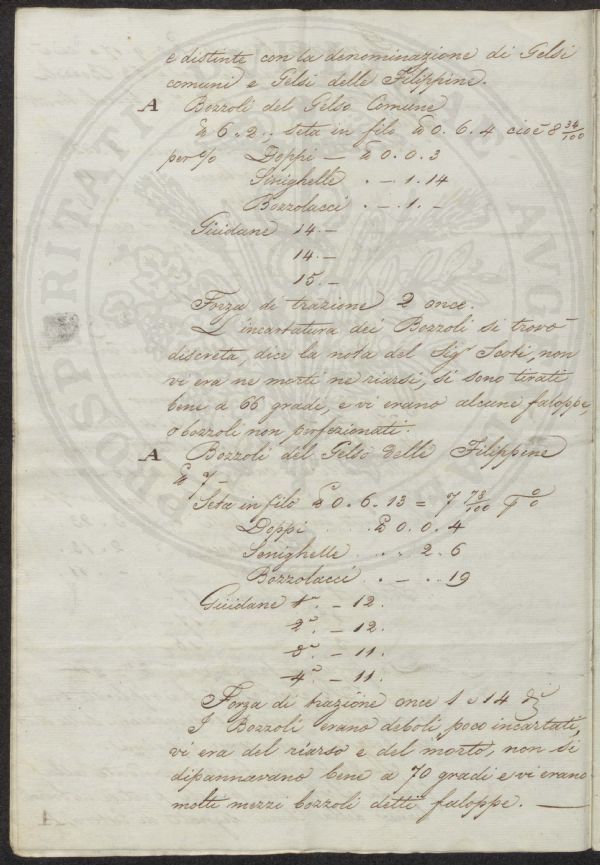 e distinte con la denominazione di Gelsi
comuni e Gelsi delle Filippine.
A Bozzoli del Gelso Comune
℔ 6. 2., seta in filo ℔ 0. 6. 4 cioè 8 34/100
per % Doppi — ℔ 0. 0. 3
Sinighelle . — . 1. 14
Bozzolacci . — . 1. —
Giiidane 14. —
14. —
15. —
Forza di trazione 2 once.
L'incartatura dei Bozzoli si trovò
discreta, dice la nota del Sigr Scoti, non
vi era ne morti ne riarsi, si sono tirati
bene a 66 gradi, e vi erano alcune faloppe,
o bozzoli non perfezionati.
A Bozzoli del Gelso delle Filippine
℔ 7 —
Seta in filo ℔ 0. 6. 13 = 7 73/100 p %
Doppi . . . . ℔ 0. 0. 4
Senighelle . . . 2. 6
Bozzolacci . — . . 19
Giiidane 1a. — 12.
2a. — 12.
3a. — 11.
4a. — 11.
Forza di trazione once 1 e 14 dr
I Bozzoli erano deboli poco incartati,
vi era del riarso e del morto, non si
dipannavano bene a 70 gradi e vi erano
molti mezzi bozzoli detti faloppe. —
PROSPERITATI PUBLICAE AUGENDAE
A